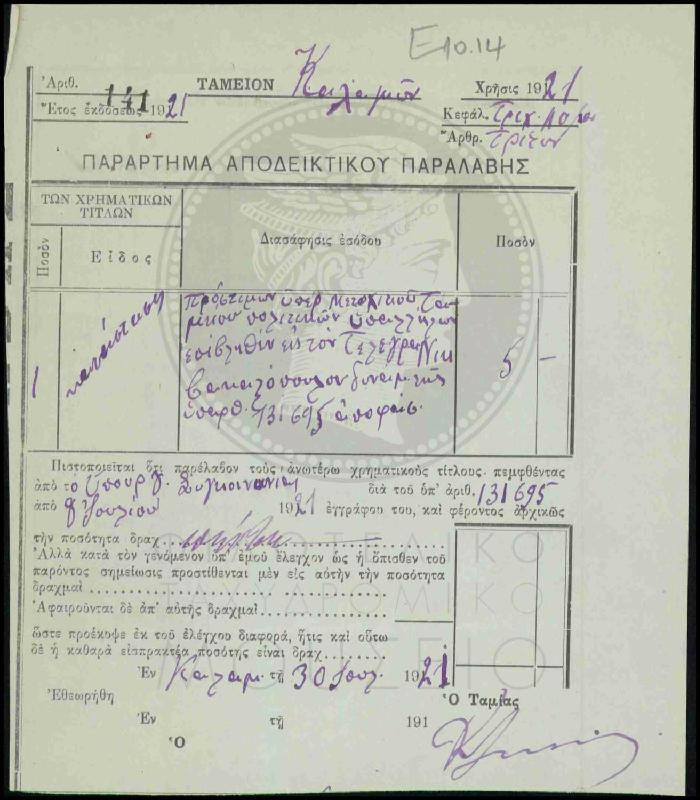 Ε10.14
Ἀριθ. 141
Ἔτος ἐκδόσεως 1921
ΤΑΜΕΙΟΝ Καλαμῶν
Χρῆσις 1921
Κεφάλ.
Ἄρθρ. Τρίτον
ΠΑΡΑΡΤΗΜΑ ΑΠΟΔΕΙΚΤΙΚΟΥ ΠΑΡΑΛΑΒΗΣ
ΤΩΝ ΧΡΗΜΑΤΙΚΩΝ ΤΙΤΛΩΝ
Ποσὸν
Εἶδος
Διασάφησις ἐσόδου
Ποσὸν
1
κατάστασις
Πρόστιμον ὑπὲρ Μετοχικοῦ Τα-
μείου πολιτικῶν ὑπαλλήλων
ἐπιβληθὲν εἰς τὸν Τηλεγραφ. Νικ
Βακαλόπουλον δυνάμει τῆς
ὑπ' ἀριθ. 131695 ἀποφάσ.
5 —
Πιστοποιεῖται ὅτι παρέλαβον τοὺς ἀνωτέρω χρηματικοὺς τίτλους πεμφθέντας
ἀπὸ τὸ Ὑπουργ. Συγκοινωνίας διὰ τοῦ ὑπ' ἀριθ. 131695
ἀπὸ Ἰουλίου 1921 ἐγγράφου του, καὶ φέροντος ἀρχικῶς
τὴν ποσότητα δραχ.
Ἀλλὰ κατὰ τὸν γενόμενον ὑπ' ἐμοῦ ἔλεγχον ὡς ἡ ὄπισθεν τοῦ
παρόντος σημείωσις προστίθενται μὲν εἰς αὐτὴν τὴν ποσότητα
δραχμαὶ
Ἀφαιροῦνται δὲ ἀπ' αὐτῆς δραχμαὶ
ὥστε προέκυψε ἐκ τοῦ ἐλέγχου διαφορά, ἥτις καὶ οὕτω
δὲ ἡ καθαρὰ εἰσπρακτέα ποσότης εἶναι δραχ.
Ἐν Καλάμ. τῇ 30 Ἰουλ. 1921
Ἐθεωρήθη
Ὁ Ταμίας
Ἐν τῇ 191
Ὁ
ΤΑΧΥΔΡΟΜΙΚΟ
ΜΟΥΣΕΙΟ